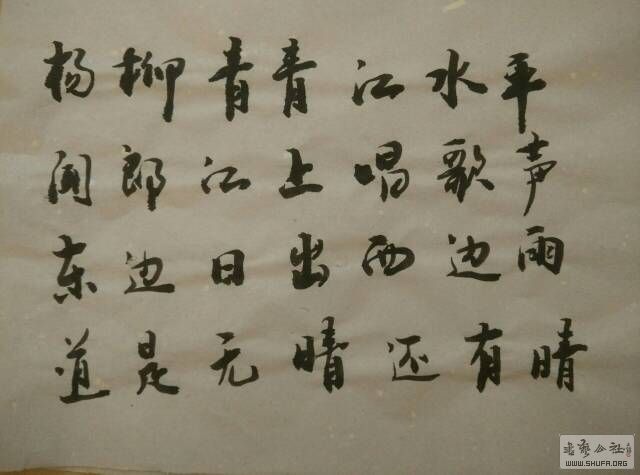 杨柳青青江水平
闻郎江上唱歌声
东边日出西边雨
道是无晴还有晴
WWW.SHUFA.ORG